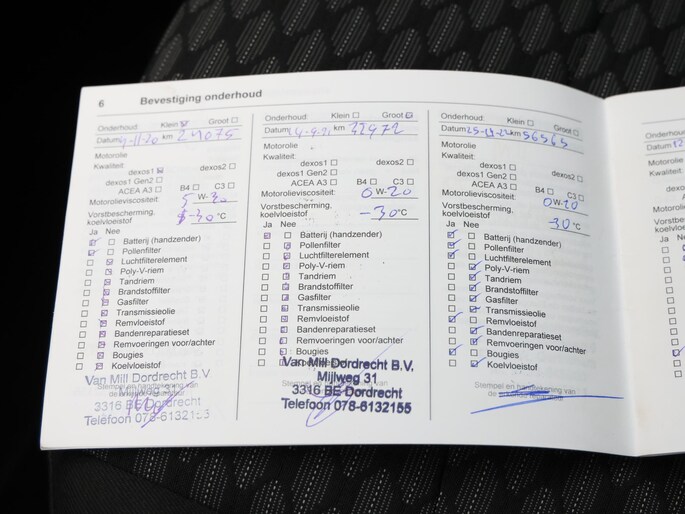 6 Bevestiging onderhoud
Onderhoud: Klein Groot
Datum km 24075
Motorolie
Kwaliteit:
dexos1 dexos2
dexos1 Gen2
ACEA A3 B4 C3
Motorolieviscositeit: 5 W-30
Vorstbescherming,
koelvloeistof -30 °C
Ja Nee
Batterij (handzender)
Pollenfilter
Luchtfilterelement
Poly-V-riem
Tandriem
Brandstoffilter
Gasfilter
Transmissieolie
Remvloeistof
Bandenreparatieset
Remvoeringen voor/achter
Bougies
Koelvloeistof
Stempel en handtekening van
Van Mill Dordrecht B.V
3316 BE Dordrecht
Telefoon 078-6132155
Onderhoud: Klein Groot
Datum km
Motorolie
Kwaliteit:
dexos1 dexos2
dexos1 Gen2
ACEA A3 B4 C3
Motorolieviscositeit: 0 W-20
Vorstbescherming,
koelvloeistof -30 °C
Ja Nee
Batterij (handzender)
Pollenfilter
Luchtfilterelement
Poly-V-riem
Tandriem
Brandstoffilter
Gasfilter
Transmissieolie
Remvloeistof
Bandenreparatieset
Remvoeringen voor/achter
Bougies
Van Mill Dordrecht B.V.
Mijlweg 31
3316 BE Dordrecht
Telefoon 078-6132155
Onderhoud: Klein Groot
Datum km 56565
Motorolie
Kwaliteit:
dexos1 dexos2
dexos1 Gen2
ACEA A3 B4 C3
Motorolieviscositeit: 0 W-20
Vorstbescherming,
koelvloeistof -30 °C
Ja Nee
Batterij (handzender)
Pollenfilter
Luchtfilterelement
Poly-V-riem
Tandriem
Brandstoffilter
Gasfilter
Transmissieolie
Remvloeistof
Bandenreparatieset
Remvoeringen voor/achter
Bougies
Koelvloeistof
Stempel en handtekening van